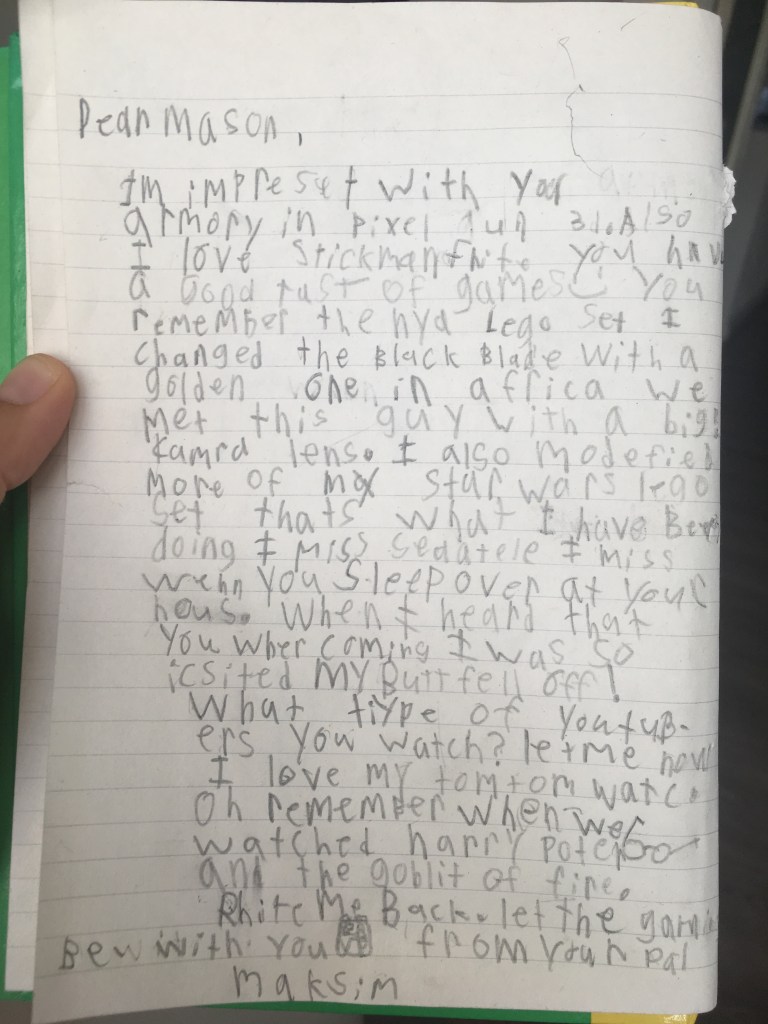 Dear Mason,
Im impreset with your
armory in pixel gun 3d. Also
I love Stickmanfnite you hav
a Good tast of games You
remember the nya Lego Set I
changed the Black Blade with a
golden one in affica we
met this guy with a big
Kamra lens. I also modefied
More of my Star wars lego
Set thats what I have Ben
doing I miss Sedatele I miss
wehn you Sleepover at your
hous. When I heard that
You wher coming I was so
icsited My Butt fell off!
What tiype of youtub-
ers you watch? let me now
I love my tomtom watc.
Oh remember when we
watched harry poter
and the goblit of fire.
Rhite Me Back. let the
Bew with you from your pal
Maksim